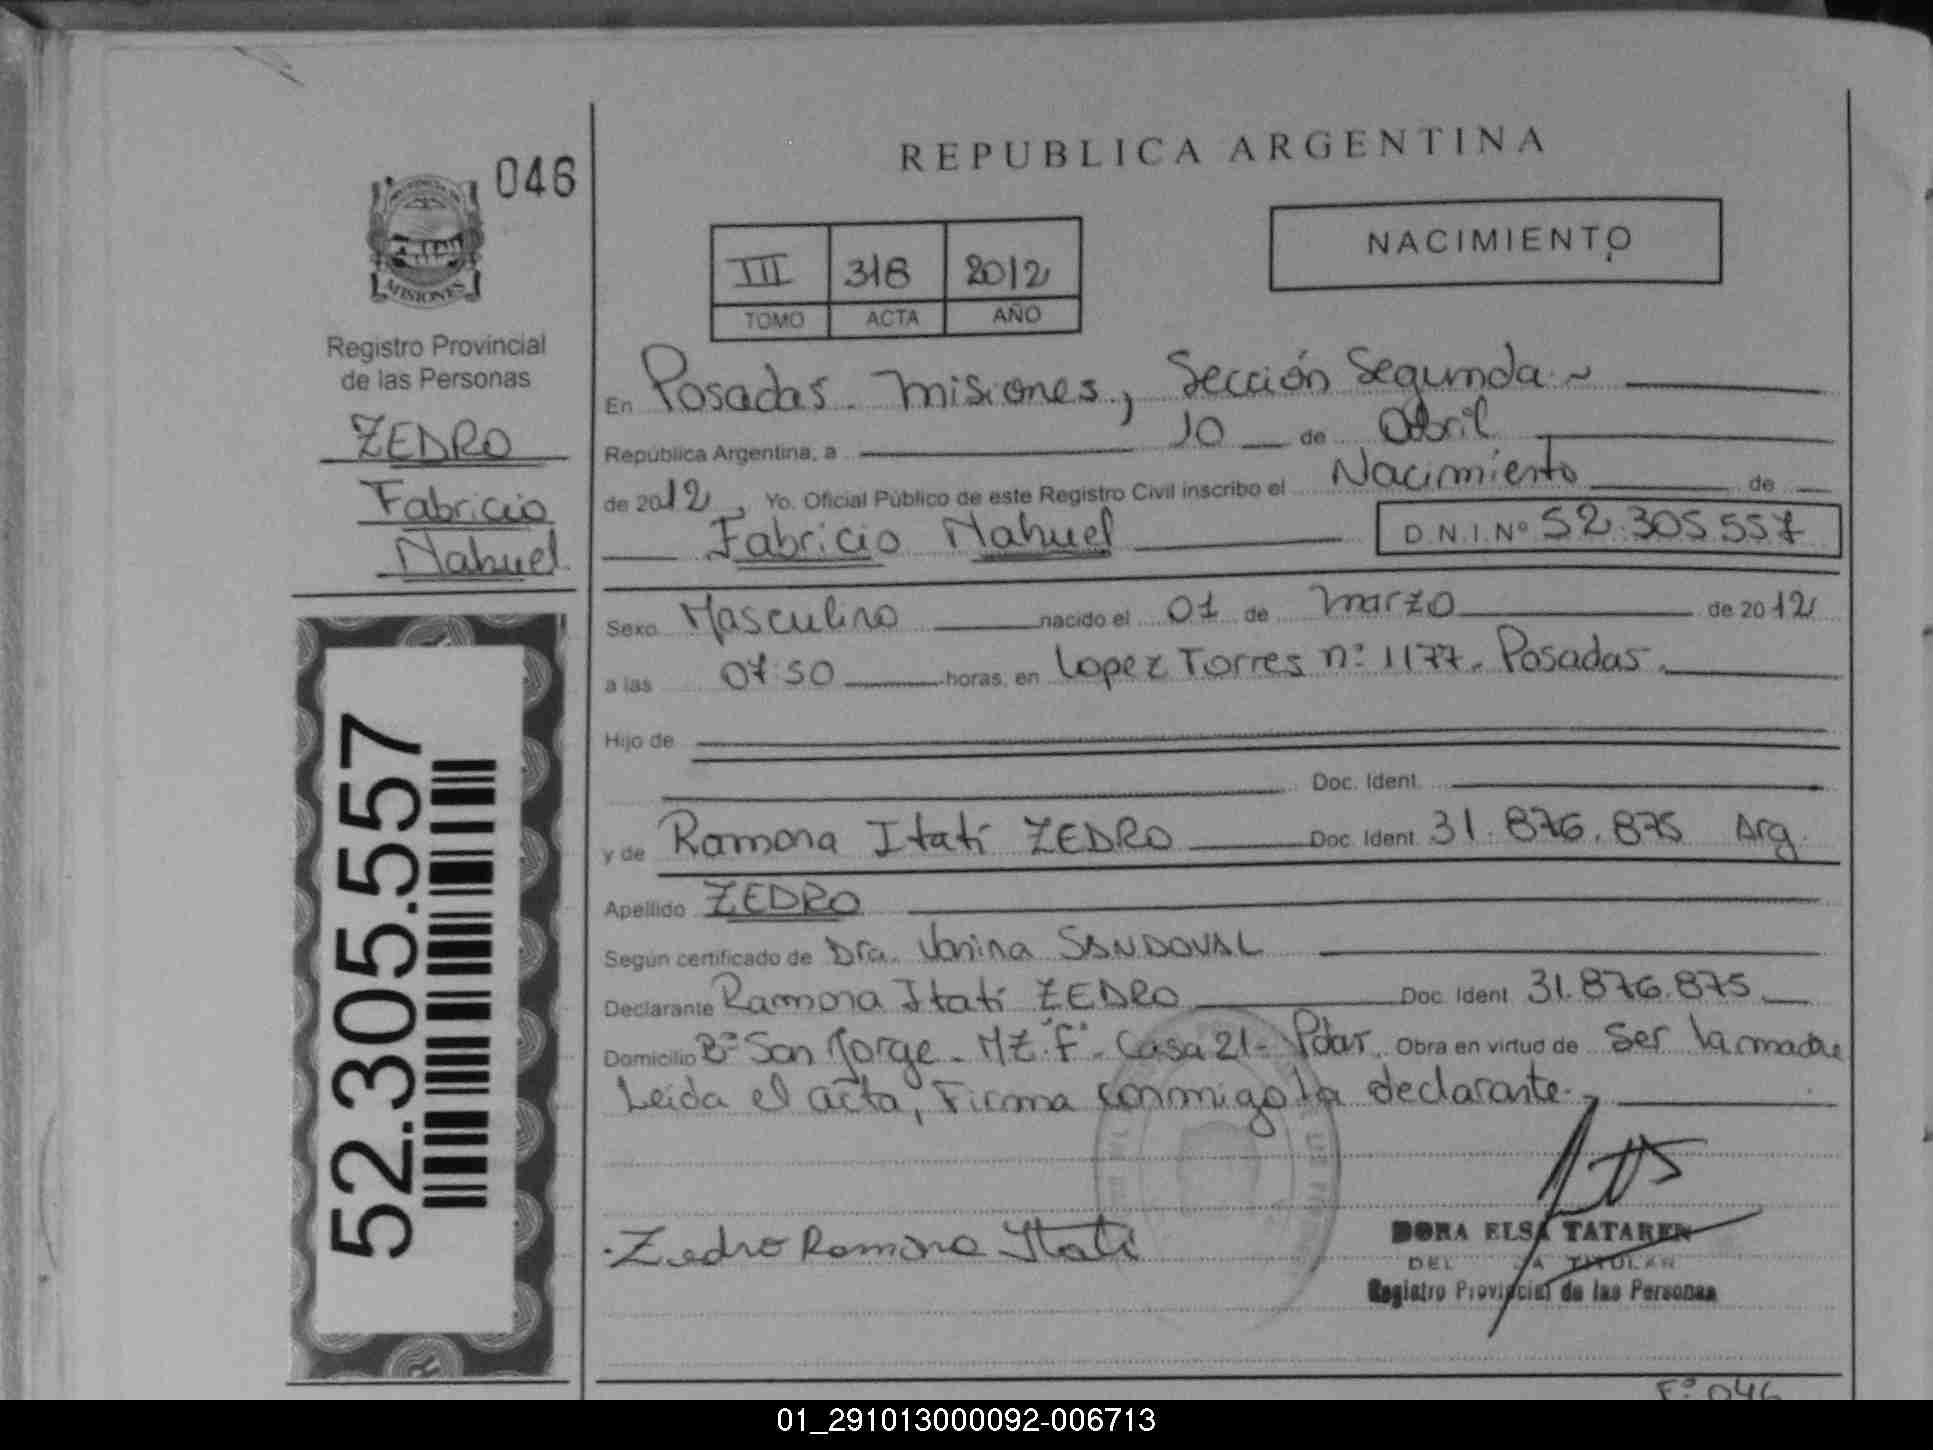 REPUBLICA ARGENTINA
046
MISIONES
Registro Provincial
de las Personas
ZEDRO
Fabricio
Nahuel
52.305.557
III 318 2012
TOMO ACTA AÑO
NACIMIENTO
En Posadas. Misiones, Sección Segunda
República Argentina, a 10 de Abril
de 2012, Yo. Oficial Público de este Registro Civil inscribo el Nacimiento de
Fabricio Nahuel D.N.I. Nº 52.305.557
Sexo Masculino nacido el 01 de Marzo de 2012
a las 07:50 horas, en Lopez Torres nº 1177. Posadas.
Hijo de
Doc. Ident.
y de Ramona Itatí ZEDRO Doc. Ident. 31.876.875 Arg.
Apellido ZEDRO
Según certificado de Dra. Vanina SANDOVAL
Declarante Ramona Itatí ZEDRO Doc. Ident. 31.876.875
Domicilio Bº San Jorge. MZ."F". Casa 21- Pdas. Obra en virtud de Ser la madre
Leida el acta, Firma conmigo la declarante.
Zedro Ramona Itatí
DORA ELSA TATAREN
DEL TITULAR
Registro Provincial de las Personas
Fº 046
01_291013000092-006713